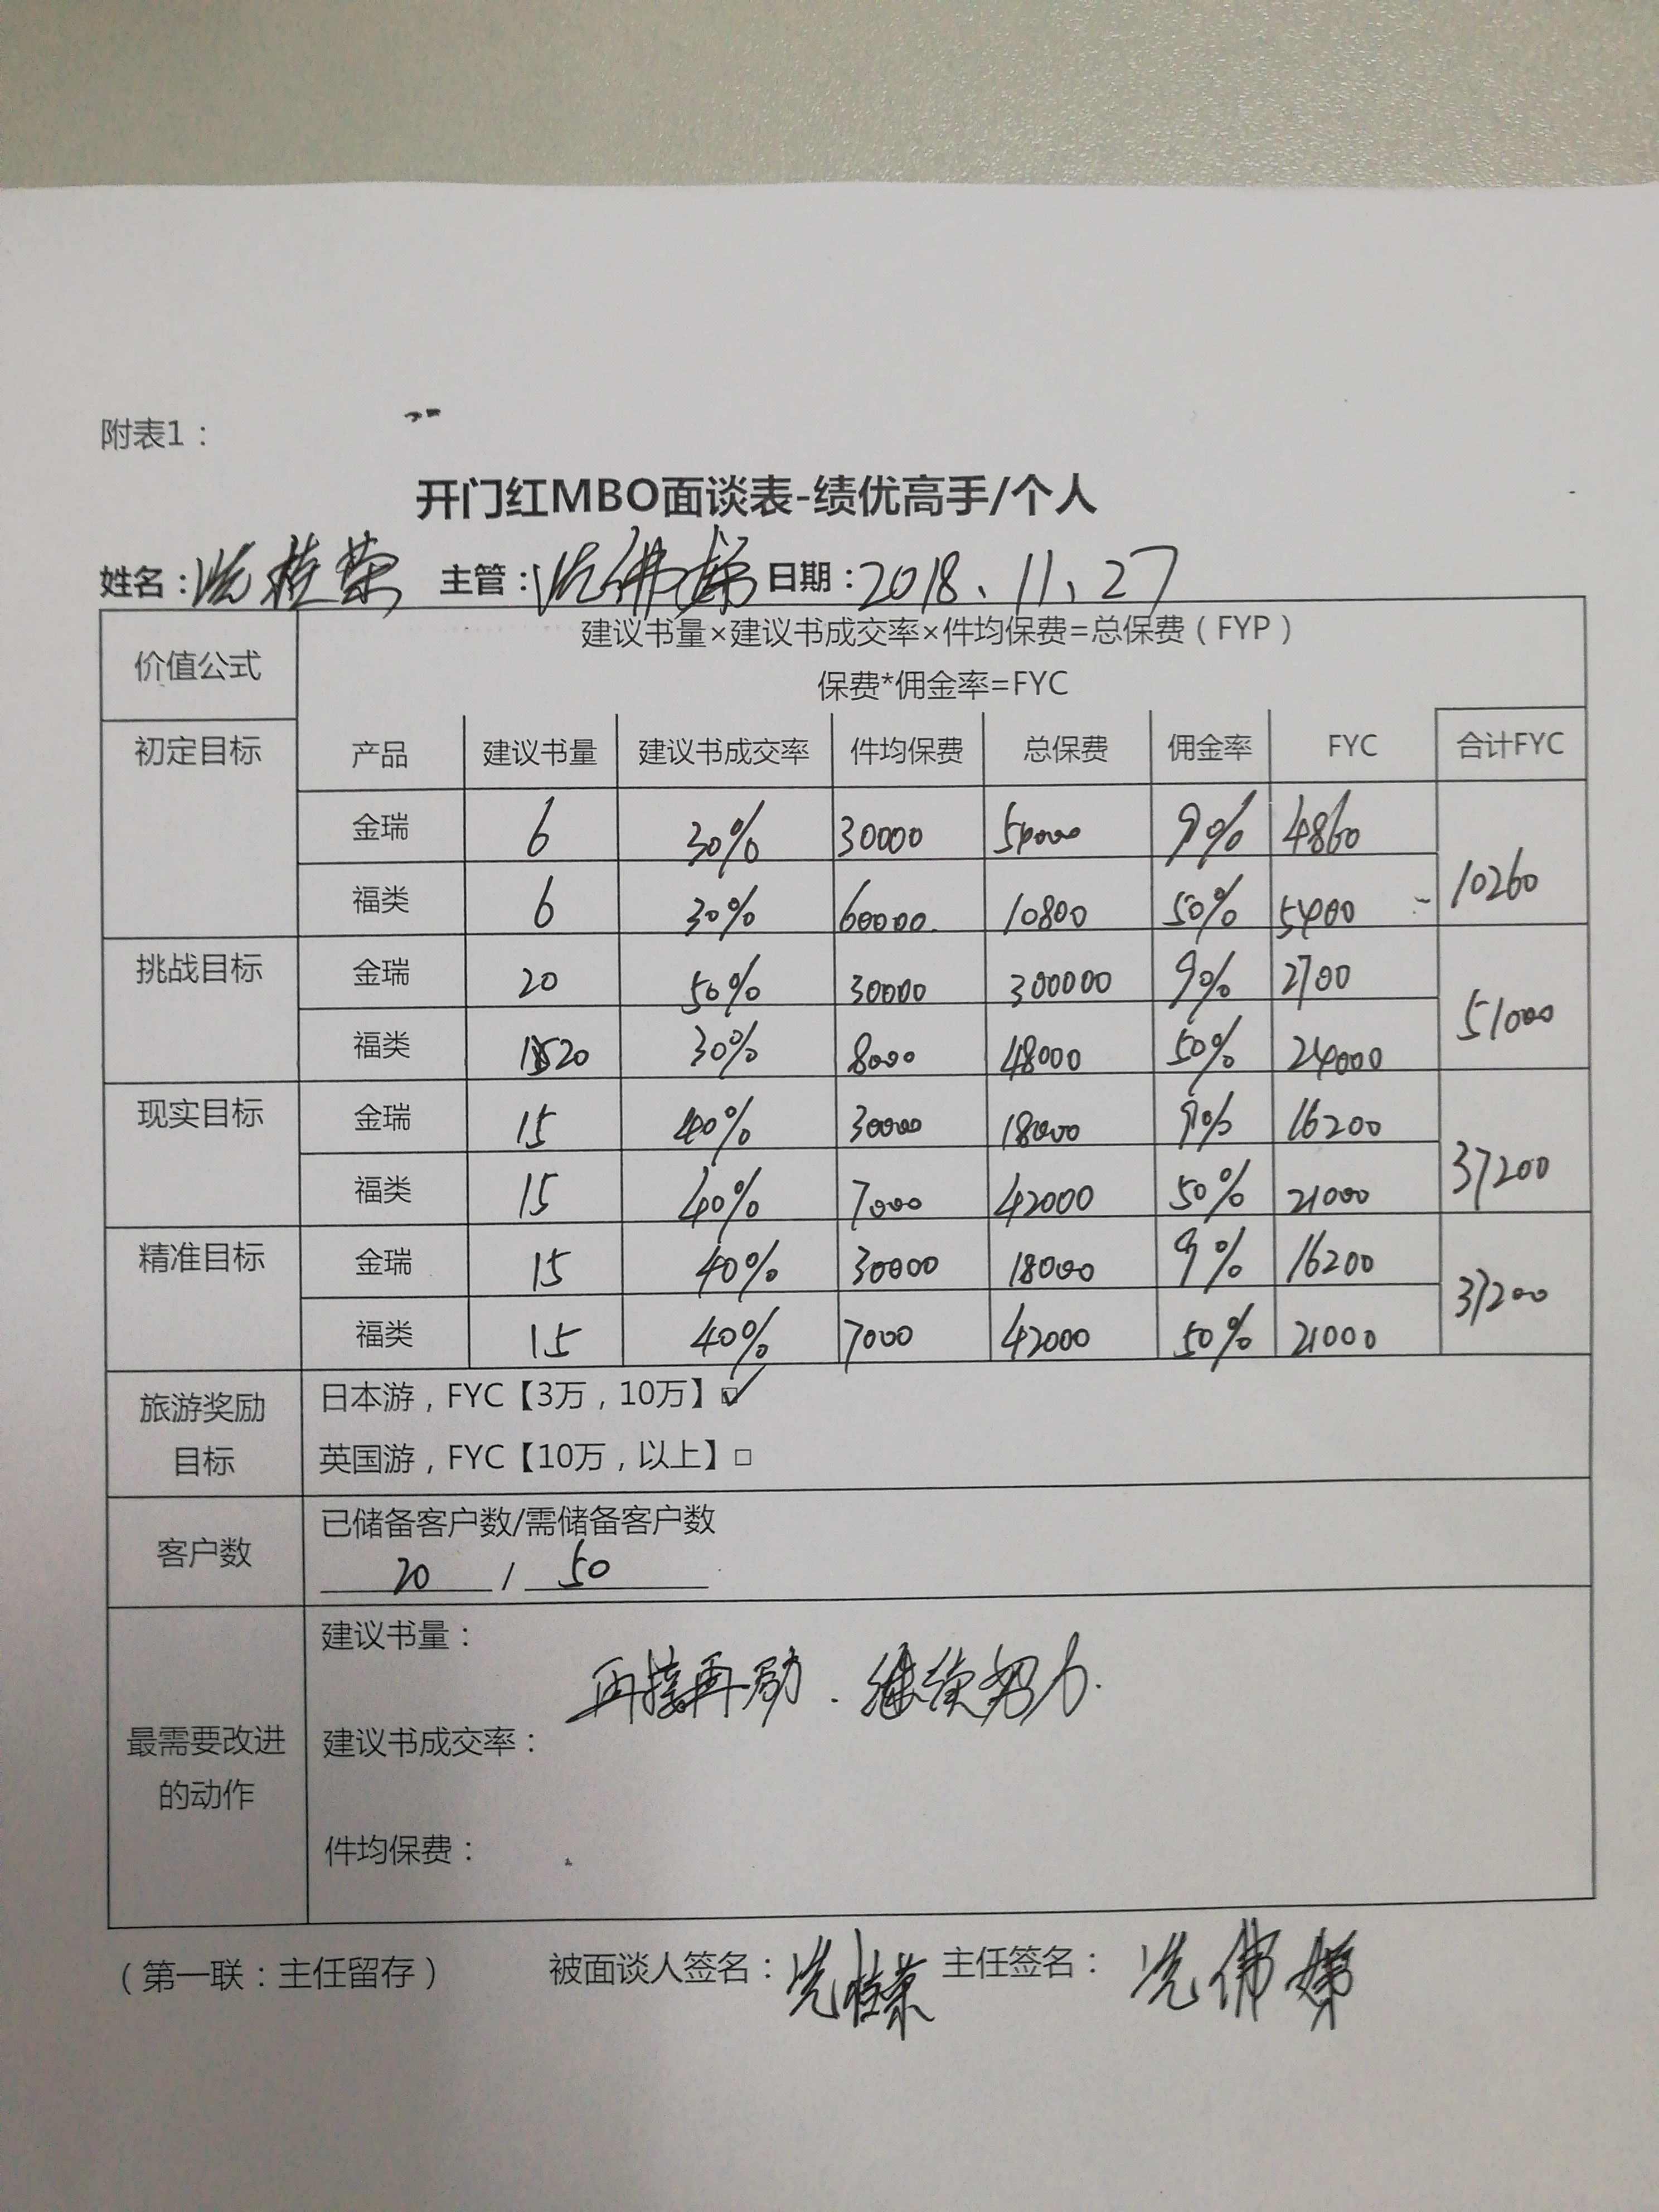 附表1：
开门红MBO面谈表-绩优高手/个人
姓名：冼桂荣 主管：冼佛娣 日期：2018.11.27
价值公式 建议书量×建议书成交率×件均保费=总保费（FYP）
保费*佣金率=FYC
初定目标 产品 建议书量 建议书成交率 件均保费 总保费 佣金率 FYC 合计FYC
金瑞 6 30% 30000 54000 9% 4860 10260
福类 6 30% 60000 10800 50% 5400
挑战目标 金瑞 20 50% 30000 300000 9% 2700 51000
福类 20 30% 8000 48000 50% 24000
现实目标 金瑞 15 40% 30000 18000 9% 16200 37200
福类 15 40% 7000 42000 50% 21000
精准目标 金瑞 15 40% 30000 18000 9% 16200 37200
福类 15 40% 7000 42000 50% 21000
旅游奖励目标 日本游，FYC【3万，10万】☑
英国游，FYC【10万，以上】□
客户数 已储备客户数/需储备客户数
20 / 50
最需要改进的动作 建议书量：
再接再励.继续努力.
建议书成交率：
件均保费：
（第一联：主任留存） 被面谈人签名：冼桂荣 主任签名：冼佛娣